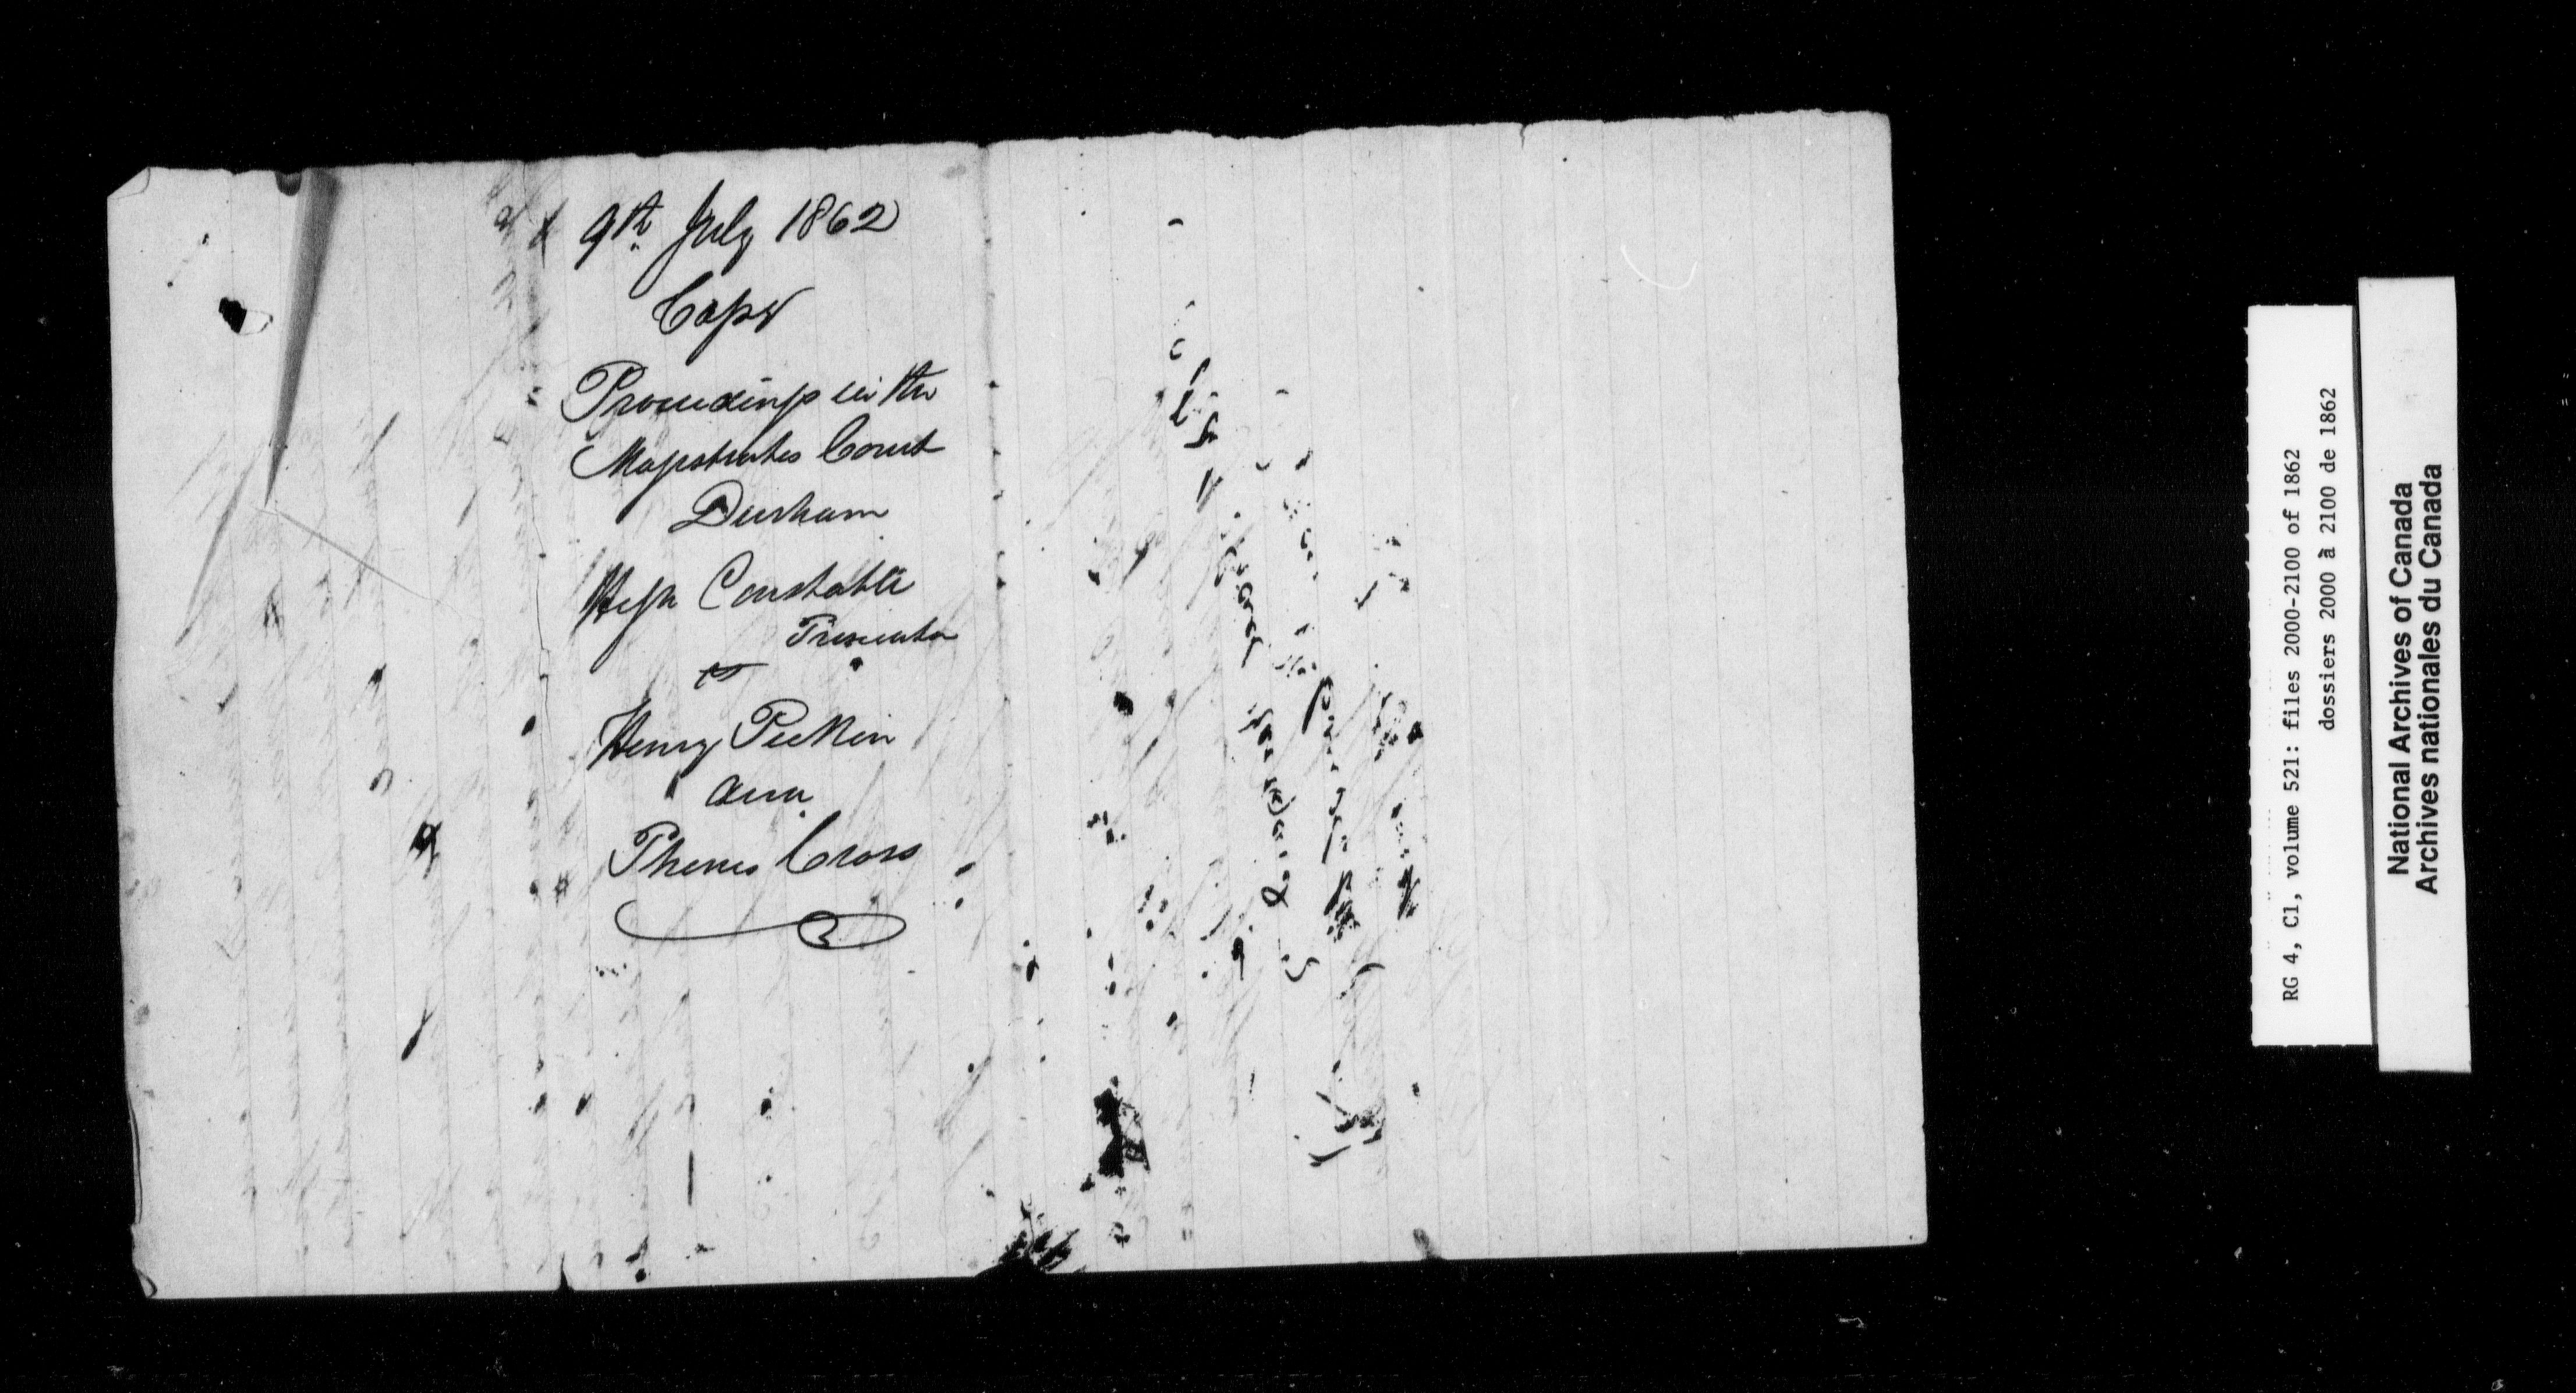 9th July 1862
Copy
Proceedings in the
Magistrates Court
Durham
High Constable
Prosecutor
vs
Henry Peckin
and
Phenes Cross
RG 4, C1, volume 521: files 2000-2100 of 1862
dossiers 2000 à 2100 de 1862
National Archives of Canada
Archives nationales du Canada